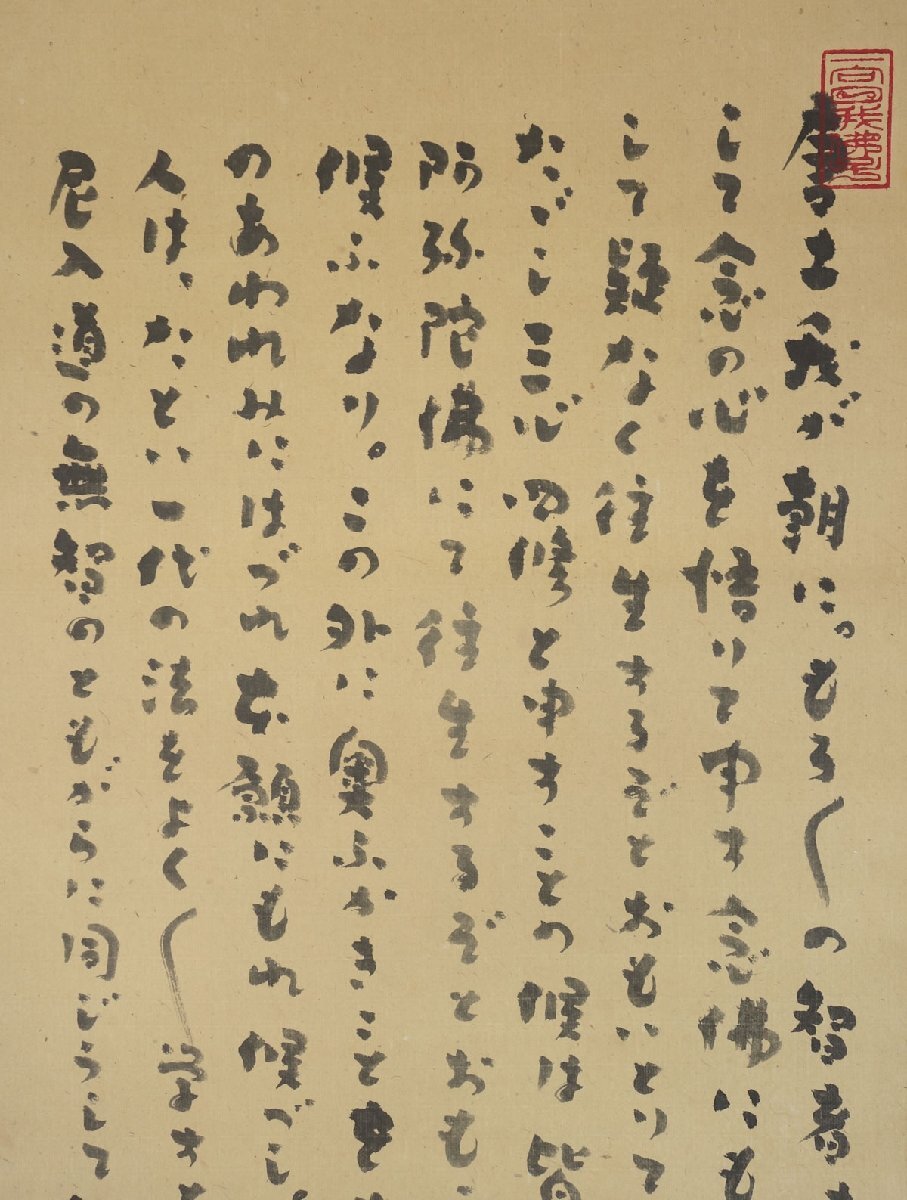 唐土我が朝に。もろ〱の智者
して念の心を悟りて申す念佛にも
して疑なく往生するぞとおもいとりて
たゞし三心四修と申すことの候は皆
阿弥陀佛にて往生するぞとおも
候ふなり。この外に奥ふかきことを
のあわれみにはづれ本願にもれ候べし。
人は、たとい一代の法をよく〱学すと
尼入道の無智のともがらに同じうして